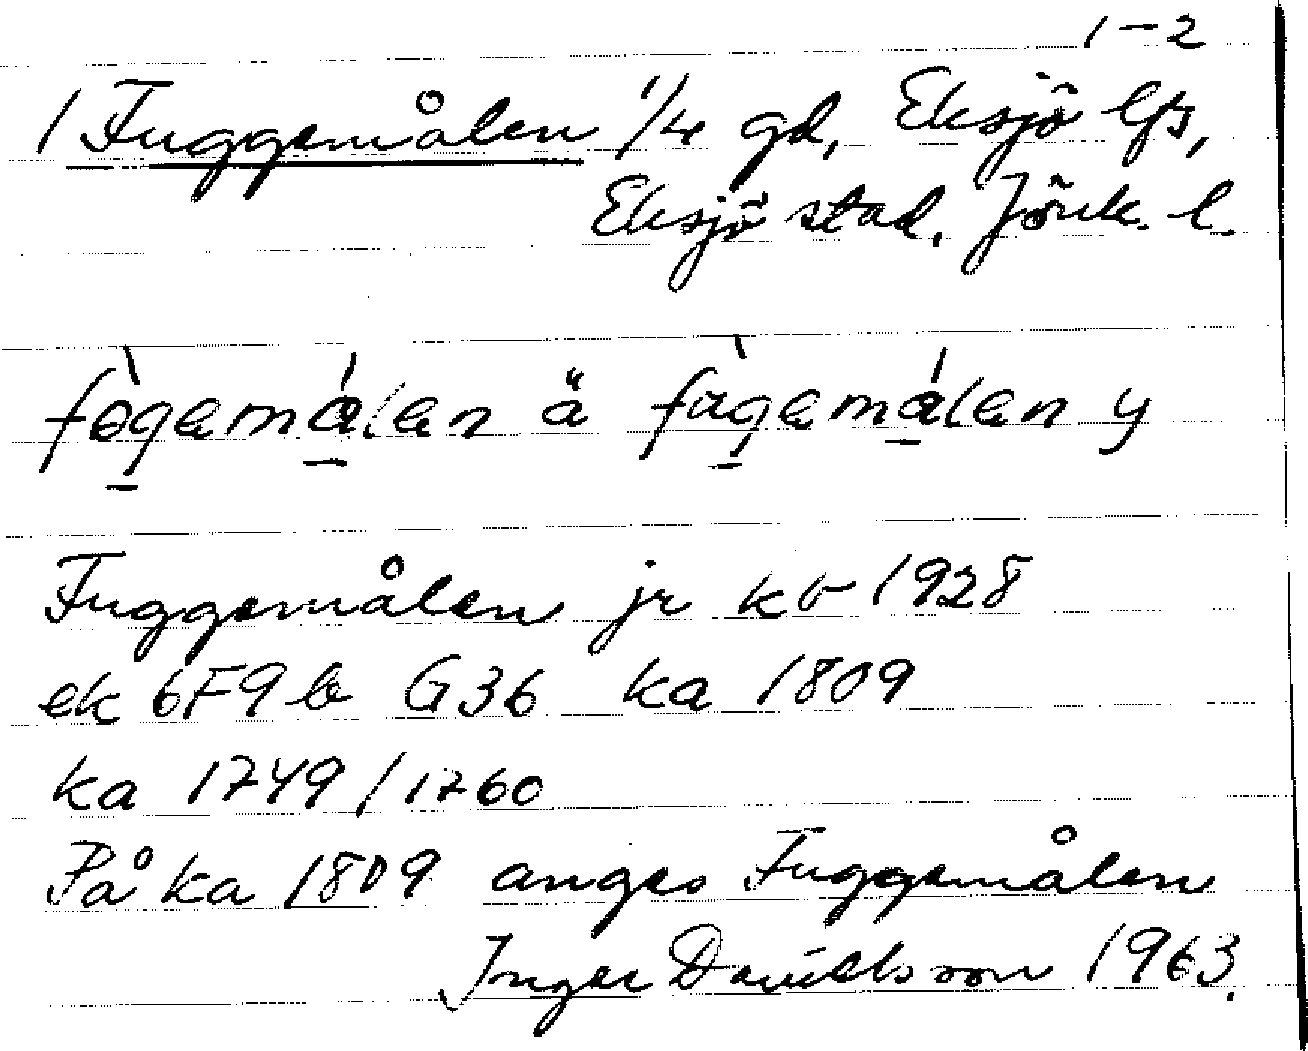 1-2
1 Fuggemålen 1/4 gd, Eksjö lfs,
Eksjö stad, Jönk. l.
fògemålen ä fùgemålen y
Fuggemålen jr kb 1928
ek 6F9b G36 ka 1809
ka 1749/1760
På ka 1809 anges Fuggemålen
Inger Danielsson 1963.